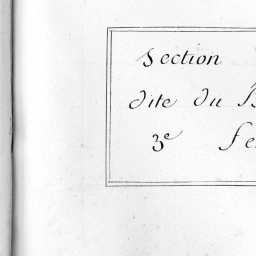 Section
dite du
3e